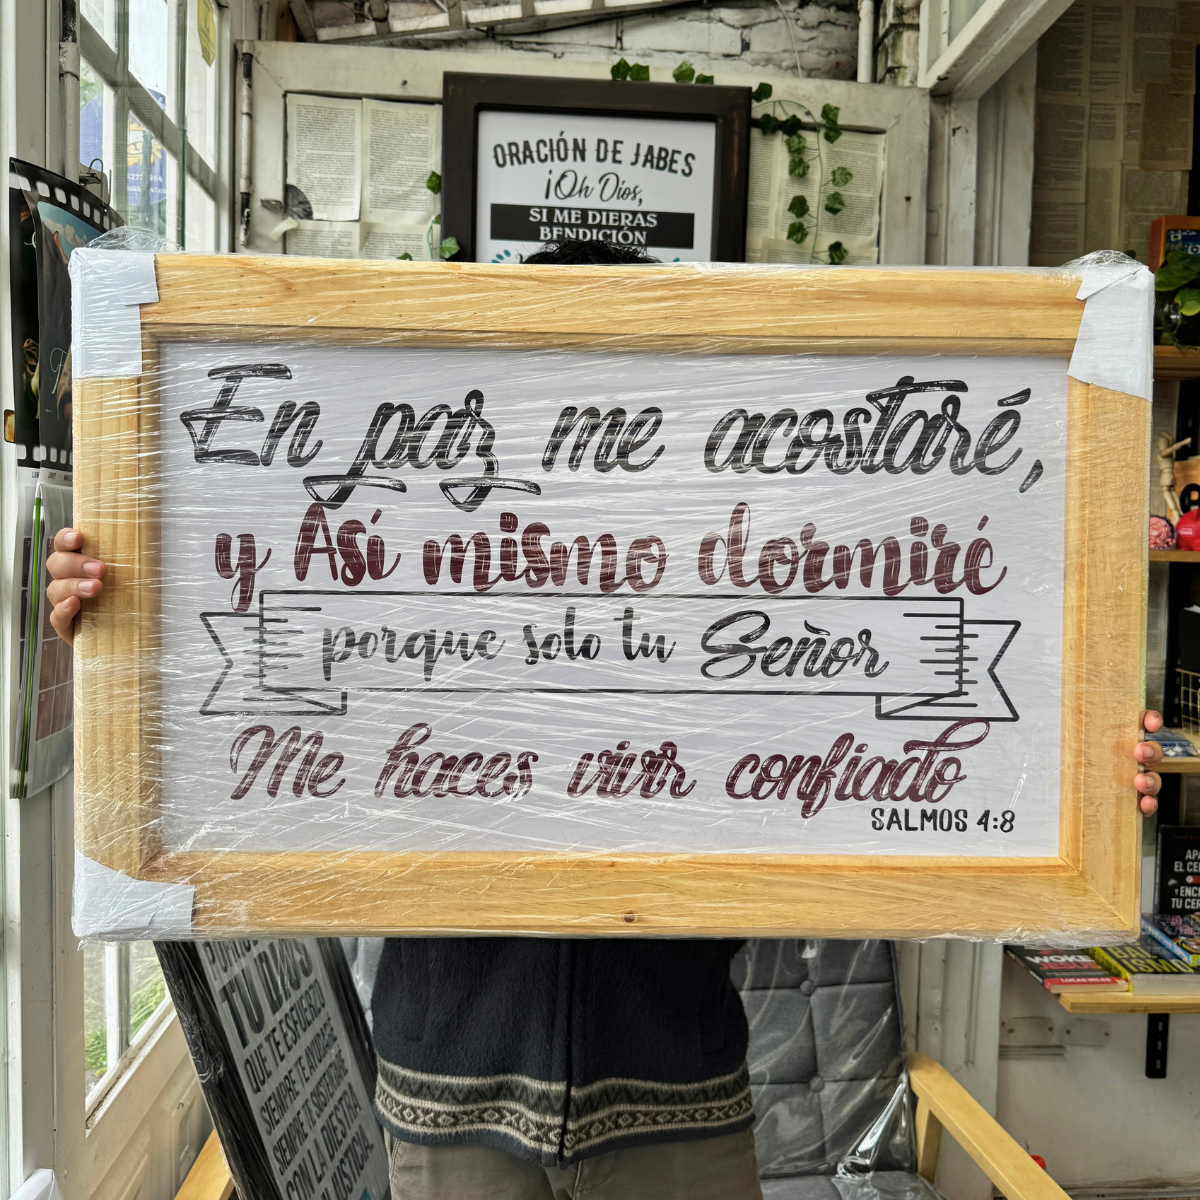 ORACIÓN DE JABES
¡Oh Dios,
SI ME DIERAS
BENDICIÓN
En paz me acostaré,
y Así mismo dormiré
porque solo tu Señor
Me haces vivir confiado
SALMOS 4:8
TU DIOS
QUE TE ESFUERZO
SIEMPRE TE AYUDARÉ
SIEMPRE TE SUSTENTARÉ
CON LA DIESTRA
JUSTICIA.
EL CER
Y ENCI
TU CER
WOKE
JESUS